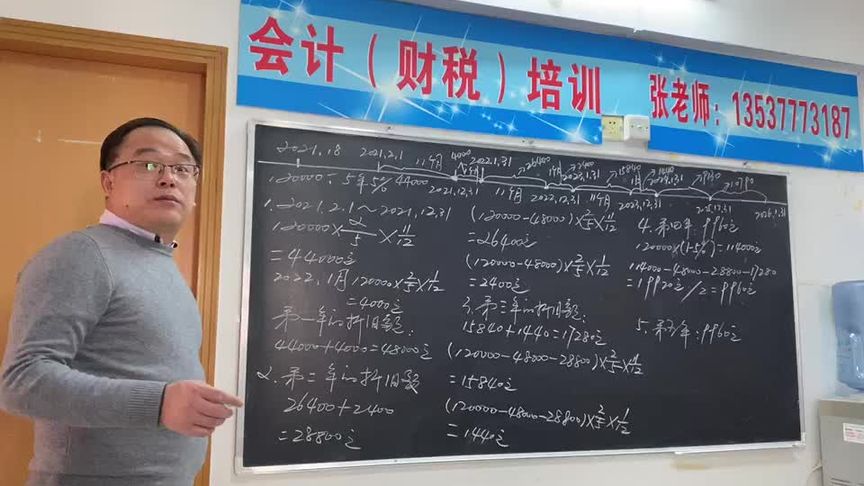 会计（财税）培训 张老师：13537773187
2021.1.8 2021.2.1 11个月 4000 2022.1.31
120000元 5年 5% 44000 2021.12.31 11个月 2022.12.31 11个月 2023.12.31
1. 2021.2.1～2021.12.31
120000×2/5×11/12
=44000元
2022.1月120000×2/5×1/12
=4000元
第一年的折旧额:
44000+4000=48000元
2. 第二年的折旧额
26400+2400
=28800元
(120000-48000)×2/5×11/12
=26400元
(120000-48000)×2/5×1/12
=2400元
3. 第三年的折旧额:
15840+1440=17280元
(120000-48000-28800)×2/5×11/12
=15840元
(120000-48000-28800)×2/5×1/12
=1440元
4. 第四年: 9960元
120000×(1-5%)=114000元
114000-48000-28800-17280
=19920元/2=9960元
5. 第五年: 9960元